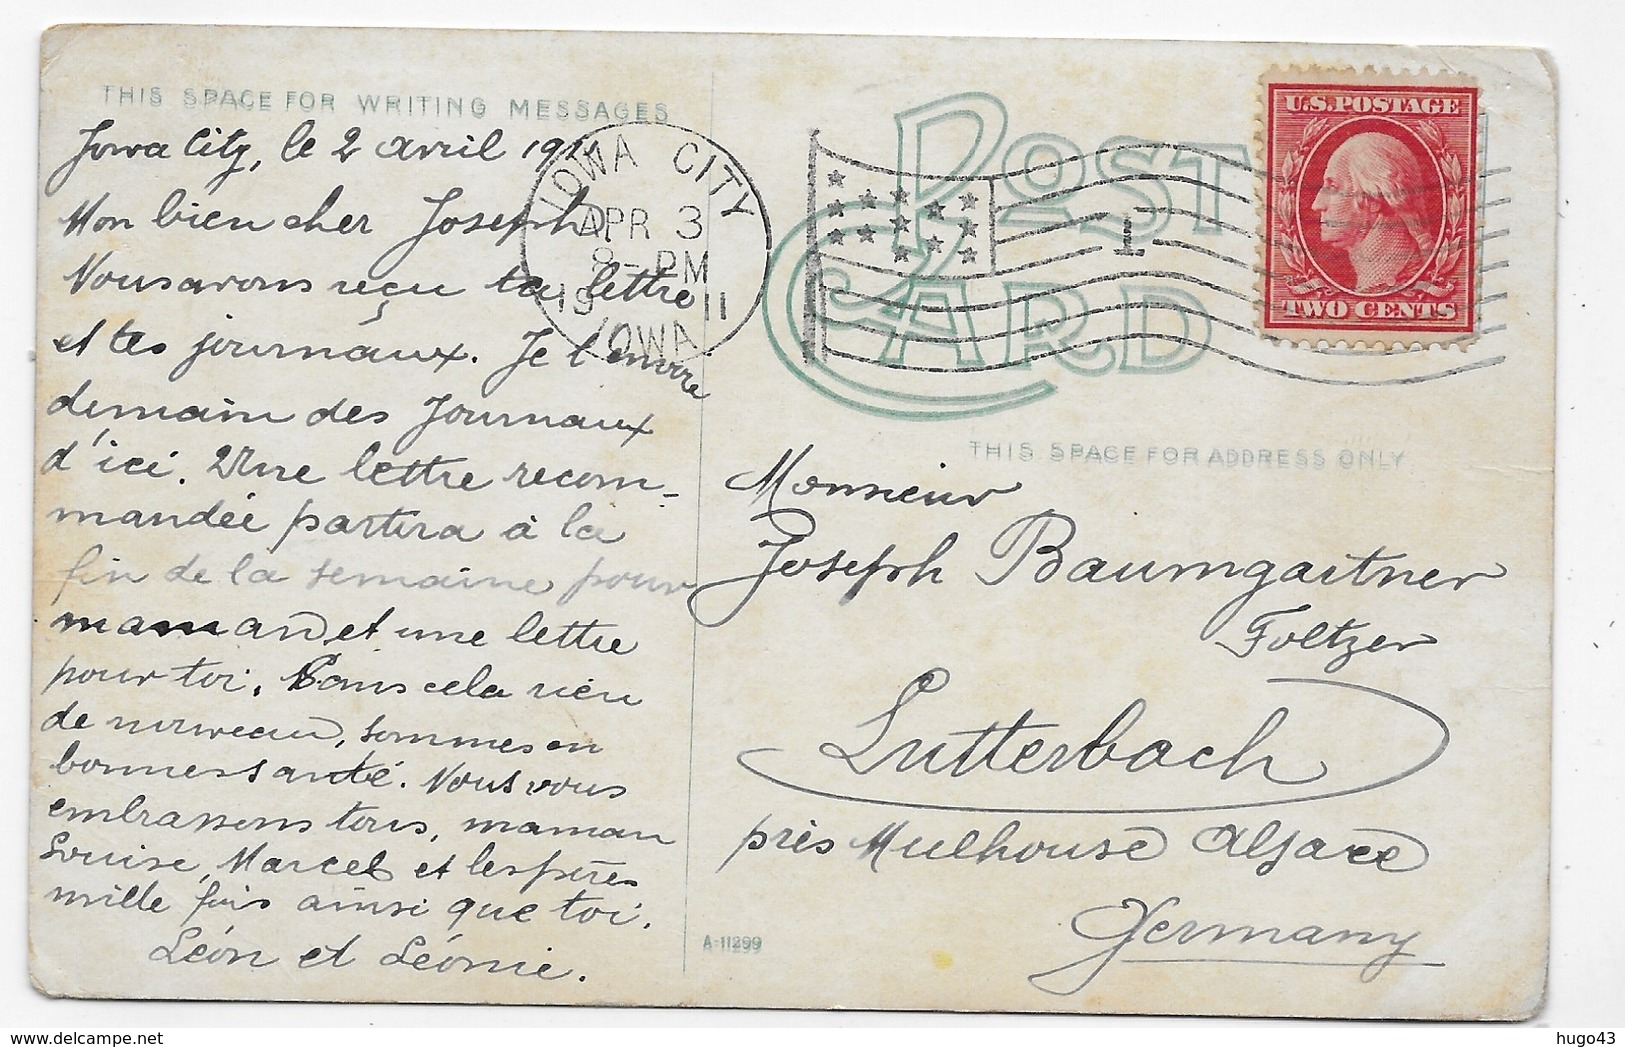 THIS SPACE FOR WRITING MESSAGES
Iowa City, le 2 avril 1911
Mon bien cher Joseph,
Nous avons reçu ta lettre
et tes journaux. Je t'envoie
demain des journaux
d'ici. Une lettre recom-
mandée partira à la
fin de la semaine pour
maman et une lettre
pour toi. Sans cela rien
de nouveau, sommes en
bonne santé. Nous vous
embrassons tous, maman
Louise, Marcel et les pères
mille fois ainsi que toi.
Léon et Léonie.
IOWA CITY
APR 3
8-PM
1911
IOWA
1
POST CARD
U.S. POSTAGE
TWO CENTS
THIS SPACE FOR ADDRESS ONLY
Monsieur
Joseph Baumgartner
Foltzer
Lutterbach
près Mulhouse Alsace
Germany
A-11299
hugo43